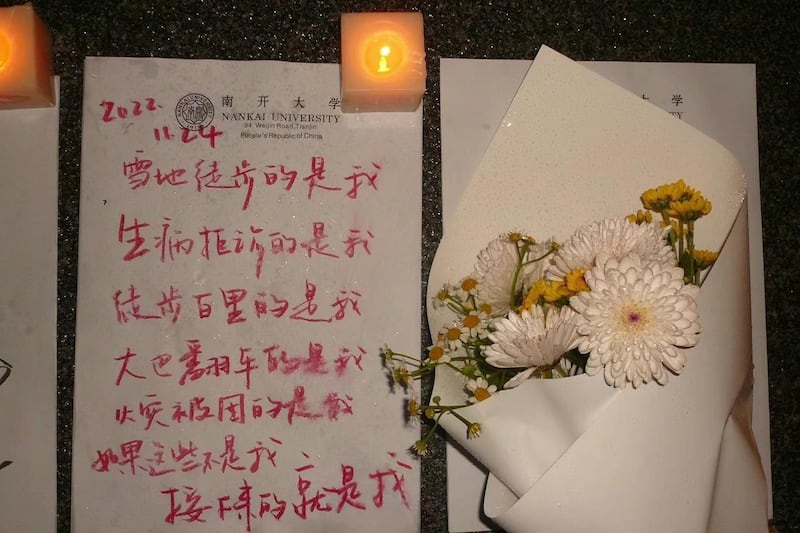 南开大学
NANKAI UNIVERSITY
94 Weijin Road,Tianjin
People's Republic of China
2022.
11.24
雪地徒步的是我
生病拒诊的是我
徒步百里的是我
大巴翻车的是我
火灾被困的是我
如果这些不是我、
接下来的就是我
大学